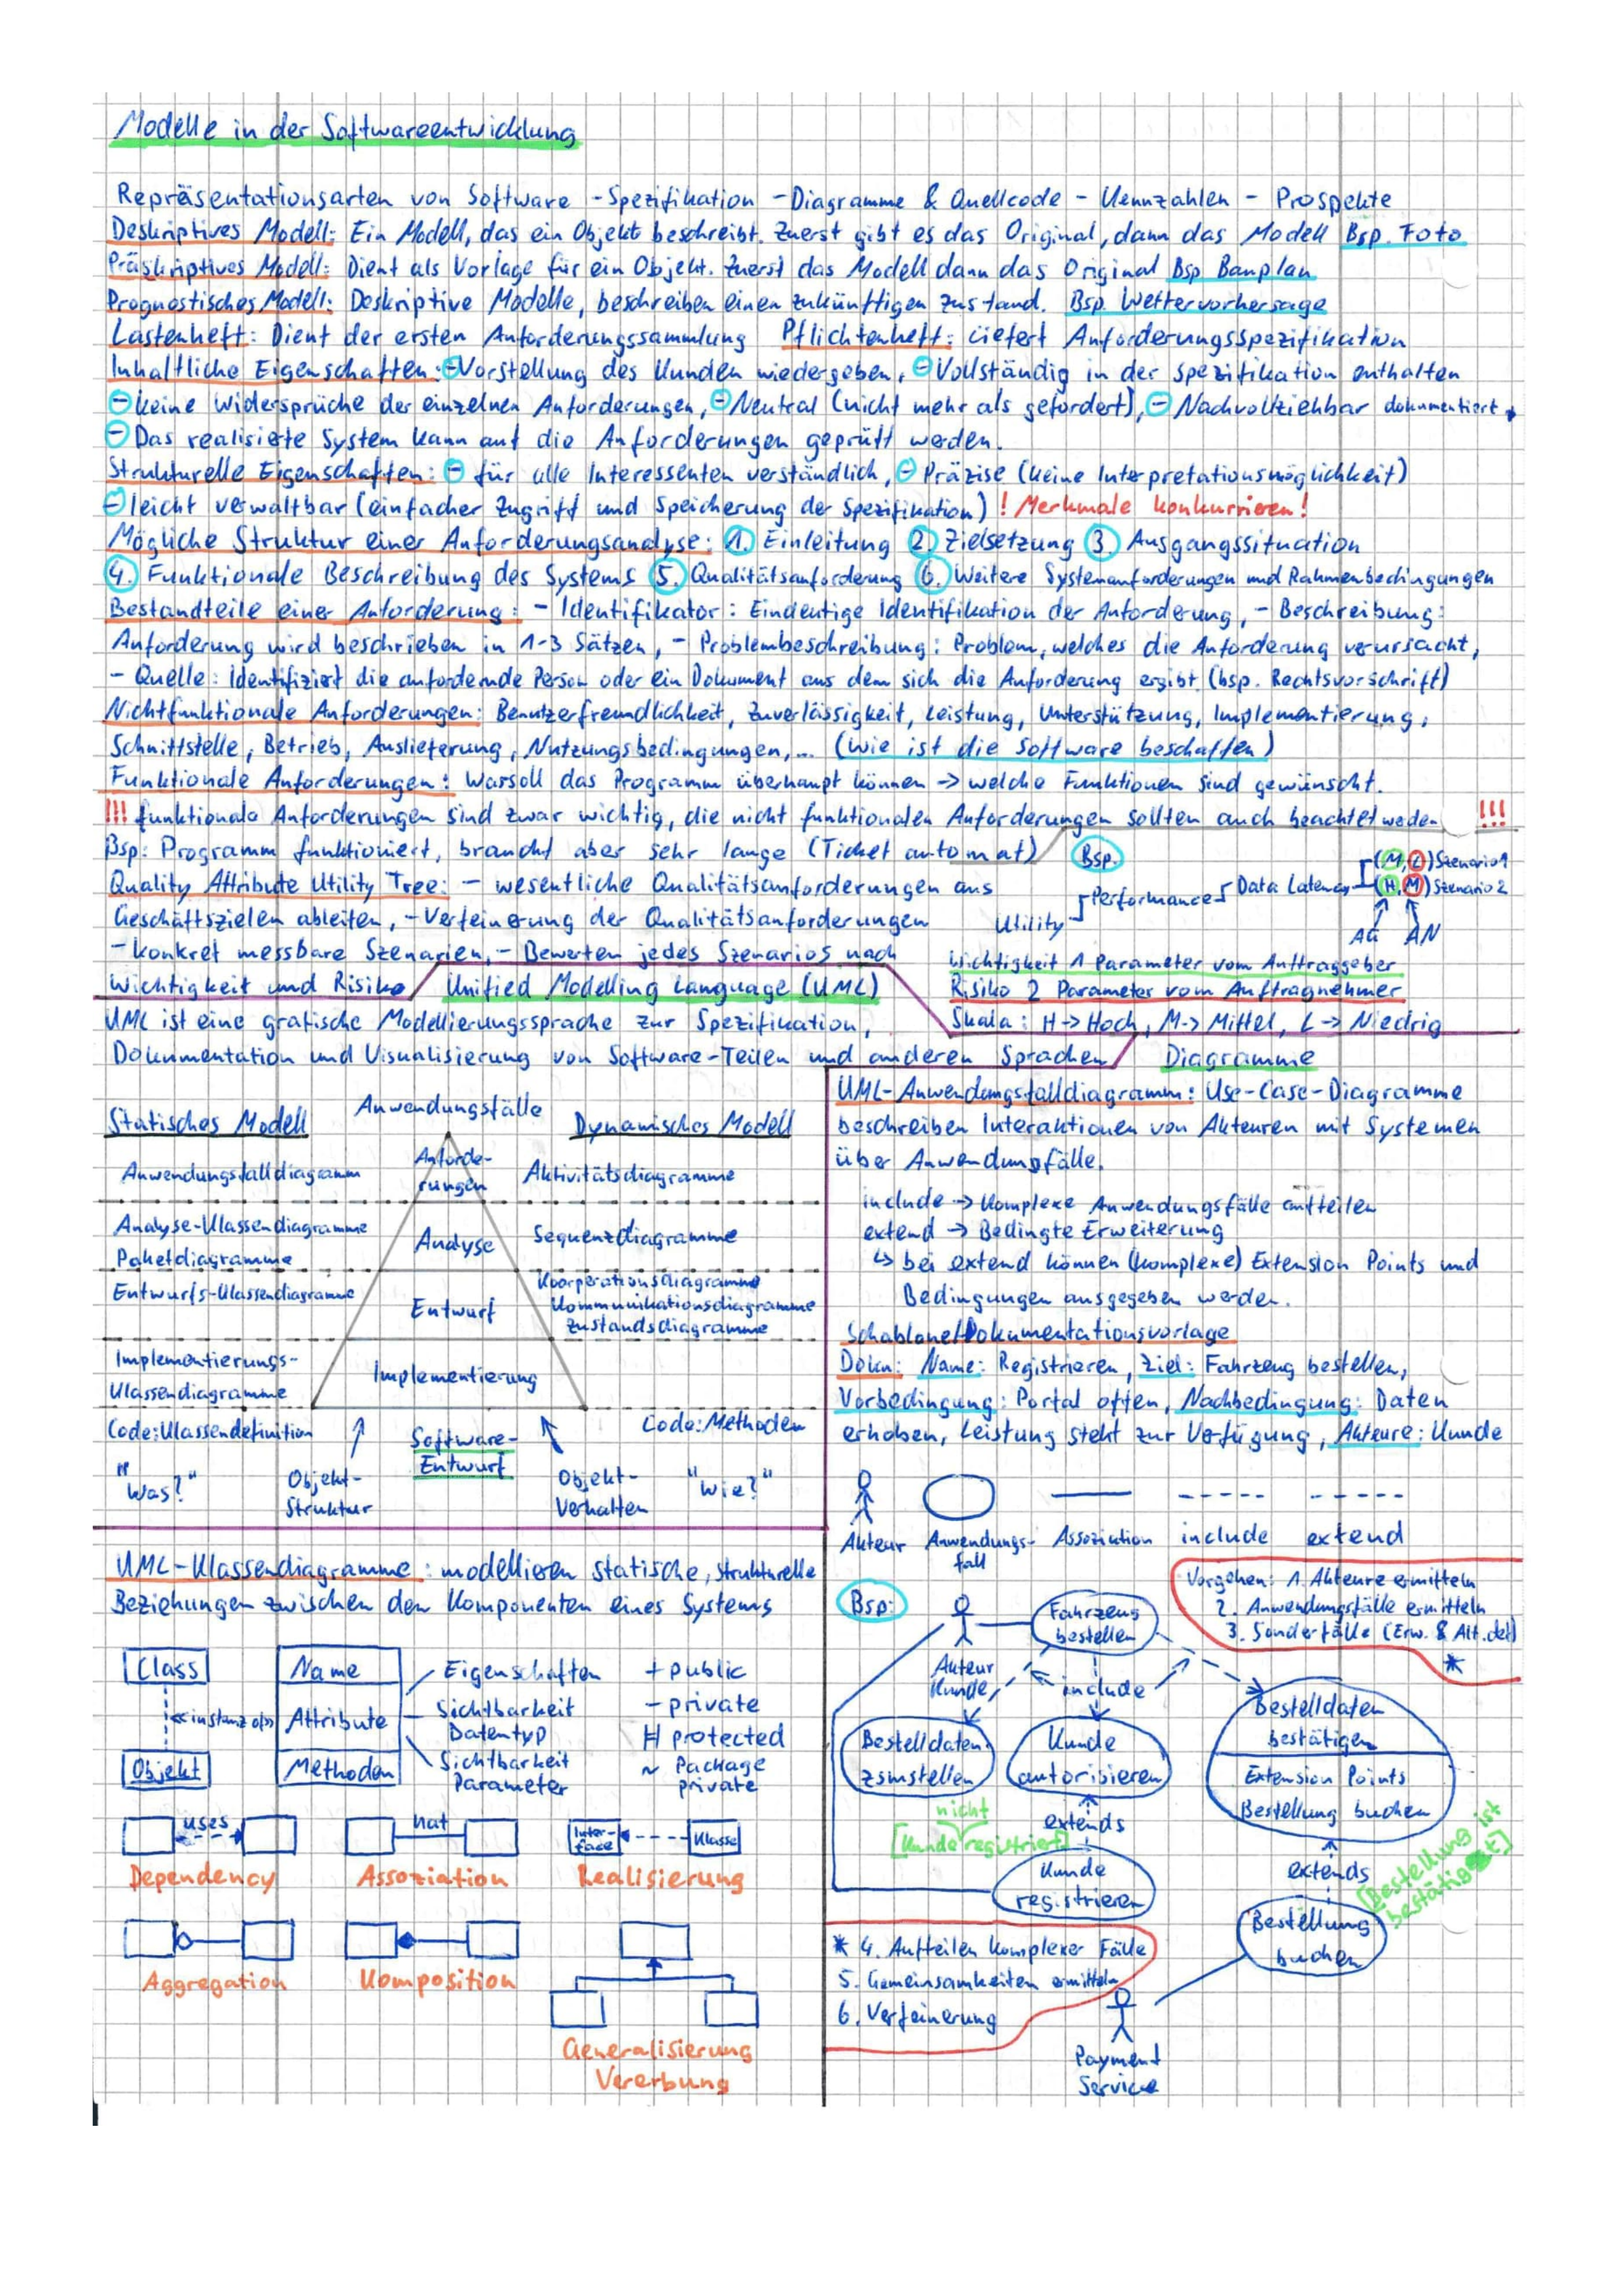 Modelle in der Softwareentwicklung
Repräsentationsarten von Software - Spezifikation - Diagramme & Quellcode - Kennzahlen - Prospekte
Deskriptives Modell: Ein Modell, das ein Objekt beschreibt. Zuerst gibt es das Original, dann das Modell Bsp. Foto
Präskriptives Modell: Dient als Vorlage für ein Objekt. Zuerst das Modell dann das Original Bsp Bauplan
Prognostisches Modell: Deskriptive Modelle, beschreiben einen zukünftigen Zustand. Bsp. Wettervorhersage
Lastenheft: Dient der ersten Anforderungssammlung Pflichtenheft: Liefert Anforderungsspezifikation
Inhaltliche Eigenschaften: - Vorstellung des Kunden wiedergeben, - Vollständig in der Spezifikation enthalten
- keine Widersprüche der einzelnen Anforderungen, - Neutral (nicht mehr als gefordert), - Nachvollziehbar dokumentiert,
- Das realisierte System kann auf die Anforderungen geprüft werden.
Strukturelle Eigenschaften: - für alle Interessenten verständlich, - Präzise (keine Interpretationsmöglichkeit)
- leicht verwaltbar (einfacher Zugriff und Speicherung der Spezifikation) ! Merkmale konkurrieren!
Mögliche Struktur einer Anforderungsanalyse: 1. Einleitung 2. Zielsetzung 3. Ausgangssituation
4. Funktionale Beschreibung des Systems 5. Qualitätsanforderung 6. Weitere Systemanforderungen und Rahmenbedingungen
Bestandteile einer Anforderung: - Identifikator: Eindeutige Identifikation der Anforderung, - Beschreibung:
Anforderung wird beschrieben in 1-3 Sätzen, - Problembeschreibung: Problem, welches die Anforderung verursacht,
- Quelle: Identifiziert die anfordernde Person oder ein Dokument aus dem sich die Anforderung ergibt (bsp. Rechtsvorschrift)
Nichtfunktionale Anforderungen: Benutzerfreundlichkeit, Zuverlässigkeit, Leistung, Unterstützung, Implementierung,
Schnittstelle, Betrieb, Auslieferung, Nutzungsbedingungen,... (Wie ist die Software beschaffen)
Funktionale Anforderungen: Was soll das Programm überhaupt können -> welche Funktionen sind gewünscht.
!!! funktionale Anforderungen sind zwar wichtig, die nicht funktionalen Anforderungen sollten auch beachtet werden !!!
Bsp: Programm funktioniert, braucht aber sehr lange (Ticket automat)
Quality Attribute Utility Tree: - wesentliche Qualitätsanforderungen aus
Geschäftszielen ableiten, - Verfeinerung der Qualitätsanforderungen
- konkret messbare Szenarien, - Bewerten jedes Szenarios nach
Wichtigkeit und Risiko
Bsp.
(M, L) Szenario 1
Utility Performance Data Latency (H, M) Szenario 2
AG AN
Wichtigkeit 1 Parameter vom Auftraggeber
Risiko 2 Parameter vom Auftragnehmer
Skala: H -> Hoch, M -> Mittel, L -> Niedrig
Unified Modelling Language (UML)
UML ist eine grafische Modellierungssprache zur Spezifikation,
Dokumentation und Visualisierung von Software-Teilen und anderen Sprachen
Anwendungsfälle
Statisches Modell Dynamisches Modell
Anwendungsfalldiagramm Anforde-rungen Aktivitätsdiagramme
Analyse-Klassendiagramme
Paketdiagramme
Analyse Sequenzdiagramme
Entwurfs-Klassendiagramme Entwurf
Koorperationsdiagramme
Kommunikationsdiagramme
Zustandsdiagramme
Implementierungs-
Klassendiagramme
Implementierung
Code: Klassendefinition Software-Entwurf Code: Methoden
"Was?" Objekt-Struktur Objekt-Verhalten "Wie?"
UML-Klassendiagramme: modellieren statische, strukturelle
Beziehungen zwischen den Komponenten eines Systems
Class
<<instanz of>>
Objekt
Name
Attribute
Methoden
Eigenschaften
Sichtbarkeit
Datentyp
Sichtbarkeit
Parameter
+ public
- private
# protected
~ Package
private
uses
Dependency
hat
Assoziation
Inter-face Klasse
Realisierung
Aggregation
Komposition
Generalisierung
Vererbung
Diagramme
UML-Anwendungsfalldiagramm: Use-Case-Diagramme
beschreiben Interaktionen von Akteuren mit Systemen
über Anwendungsfälle.
include -> Komplexe Anwendungsfälle aufteilen
extend -> Bedingte Erweiterung
↳ bei extend können (komplexe) Extension Points und
Bedingungen ausgegeben werden.
Schablone/Dokumentationsvorlage
Doku: Name: Registrieren, Ziel: Fahrzeug bestellen,
Vorbedingung: Portal offen, Nachbedingung: Daten
erhoben, Leistung steht zur Verfügung, Akteure: Kunde
Akteur Anwendungs-fall Assoziation include extend
Vorgehen: 1. Akteure ermitteln
2. Anwendungsfälle ermitteln
3. Sonderfälle (Erw. & Alt. det)
*
Bsp:
Akteur
Kunde
Fahrzeug
bestellen
include
Bestelldaten
zsmstellen
Kunde
autorisieren
Bestelldaten
bestätigen
Extension Points
Bestellung buchen
nicht
[Kunde registriert]
extends
Kunde
registrieren
extends
[Bestellung ist
bestätigt]
Bestellung
buchen
* 4. Aufteilen komplexer Fälle
5. Gemeinsamkeiten ermitteln
6. Verfeinerung
Payment
Service